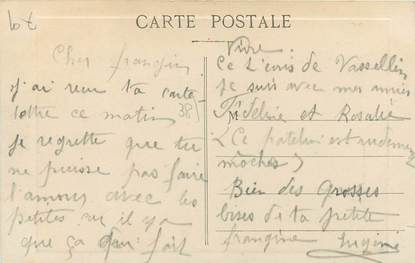 67
CARTE POSTALE
Cher frangin
j'ai reçu ta carte
lettre ce matin
je regrette que tu
ne puisse pas faire
l'amour avec les
petites car il y a
que ça qui fait
vivre.
Ce L'enis de Vassellin
je suis avec mes amies
Fideline et Rosalie
(Ce patelin est
moche)
38
Bien des Grosses
bises de ta petite
frangine Eugénie